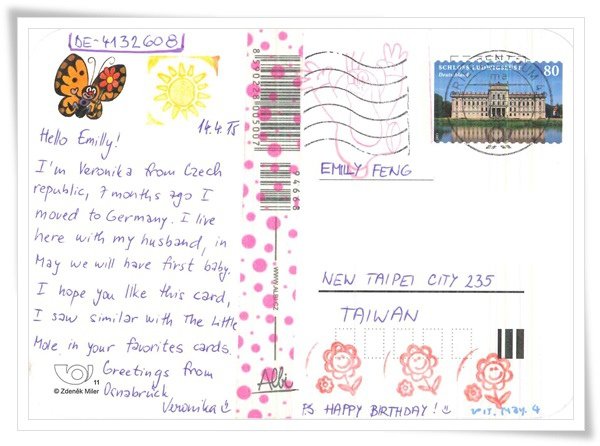 DE-4132608
14.4.15
Hello Emilly!
I'm Veronika from Czech
republic, 7 months ago I
moved to Germany. I live
here with my husband, in
May we will have first baby.
I hope you like this card,
I saw similar with The Little
Mole in your favorites cards.
Greetings from
Osnabrück
Veronika
11
© Zdeněk Miler
8 590228 005007
94668
WWW.ALBI.CZ
Albi
SCHLOSS LUDWIGSLUST
Deutschland
80
EMILY FENG
NEW TAIPEI CITY 235
TAIWAN
PS HAPPY BIRTHDAY!
2015. May. 4